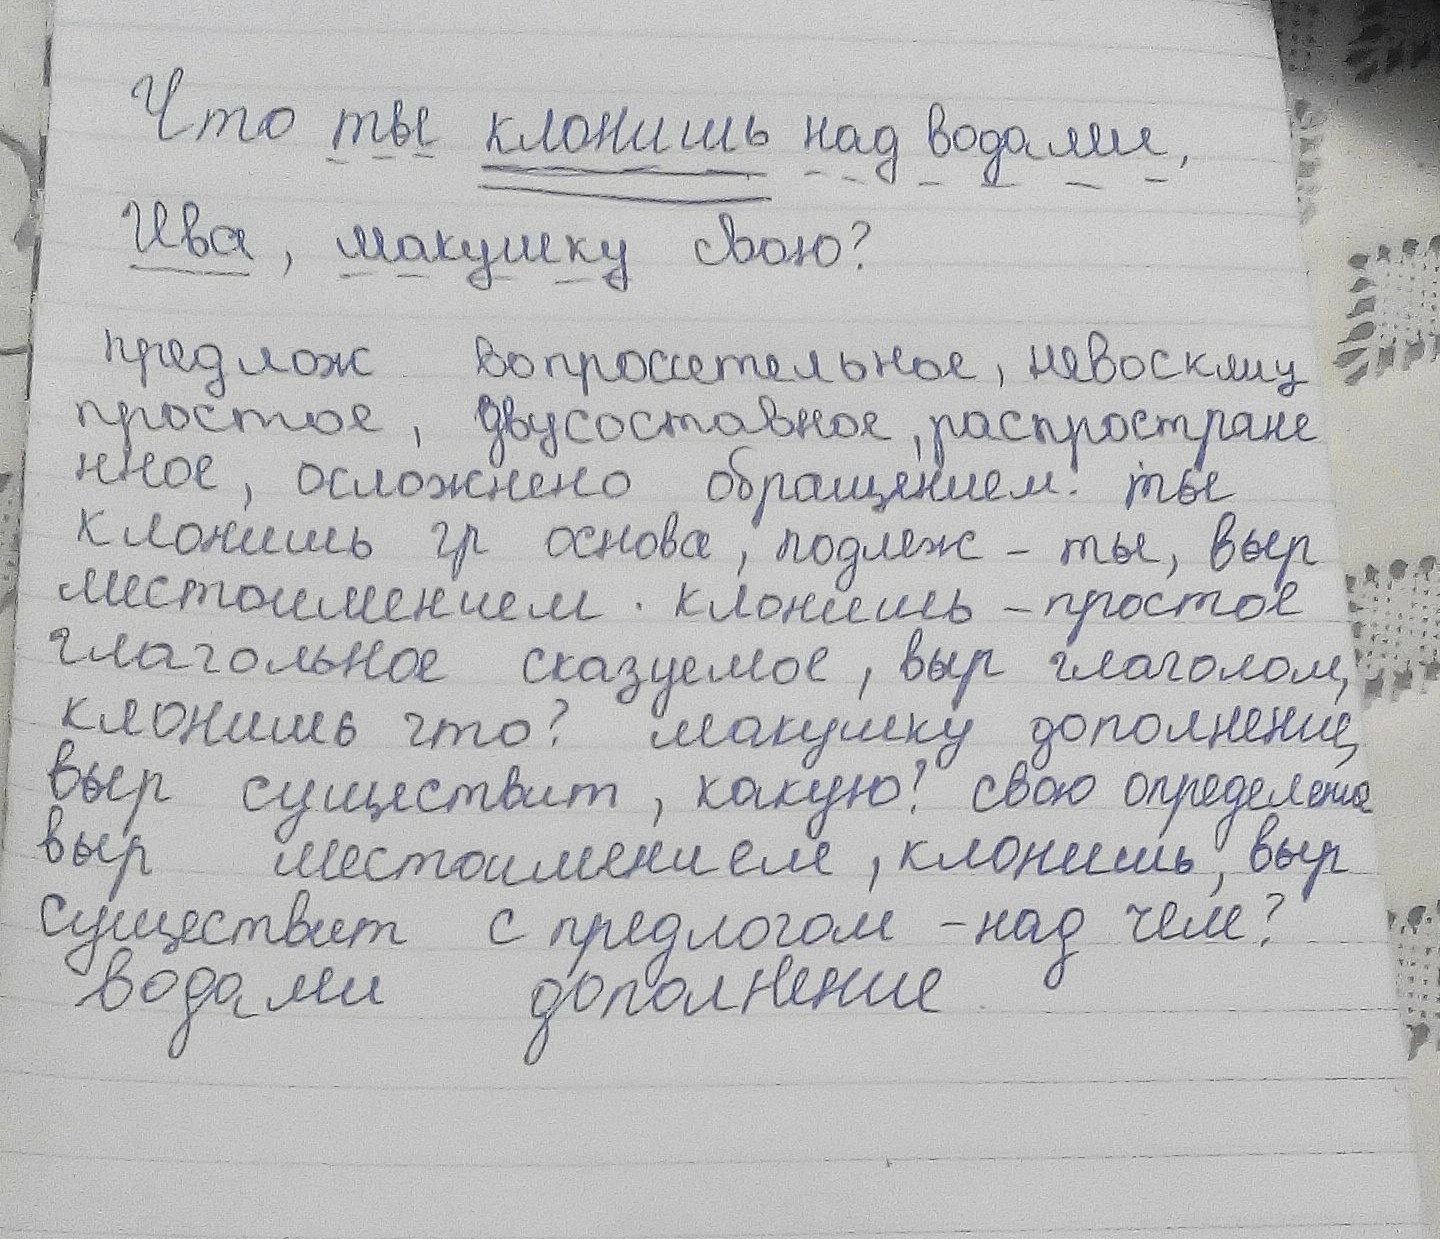 Что ты клонишь над водами,
Ива, макушку свою?
предлож вопросительное, невосклиц
простое, двусоставное, распростране
нное, осложнено обращением. ты
клонишь гр основа, подлеж - ты, выр
местоимением. клонишь - простое
глагольное сказуемое, выр глаголом,
клонишь что? макушку дополнение,
выр существит, какую? свою определение
выр местоимением, клонишь, выр
существит с предлогом - над чем?
водами дополнение